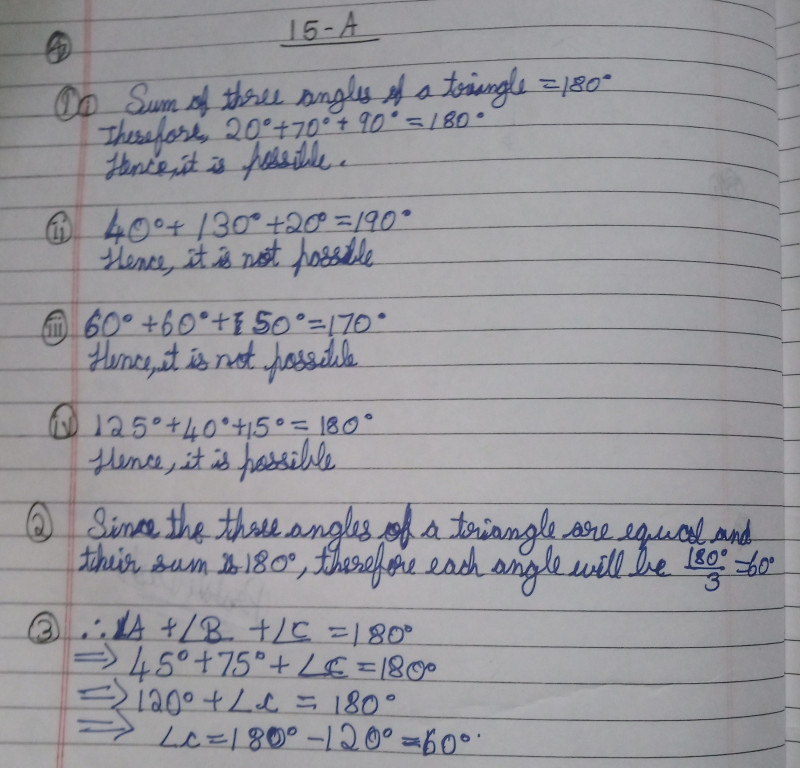 15-A
① ⓘ Sum of three angles of a triangle = 180°
Therefore, 20° + 70° + 90° = 180°
Hence, it is possible.
ⓘⓘ 40° + 130° + 20° = 190°
Hence, it is not possible
ⓘⓘⓘ 60° + 60° + 50° = 170°
Hence, it is not possible
ⓘⓥ 125° + 40° + 15° = 180°
Hence, it is possible
② Since the three angles of a triangle are equal and
their sum is 180°, therefore each angle will be 180°/3 = 60°
③ ∴ ∠A + ∠B + ∠C = 180°
⇒ 45° + 75° + ∠C = 180°
⇒ 120° + ∠C = 180°
⇒ ∠C = 180° - 120° = 60°.